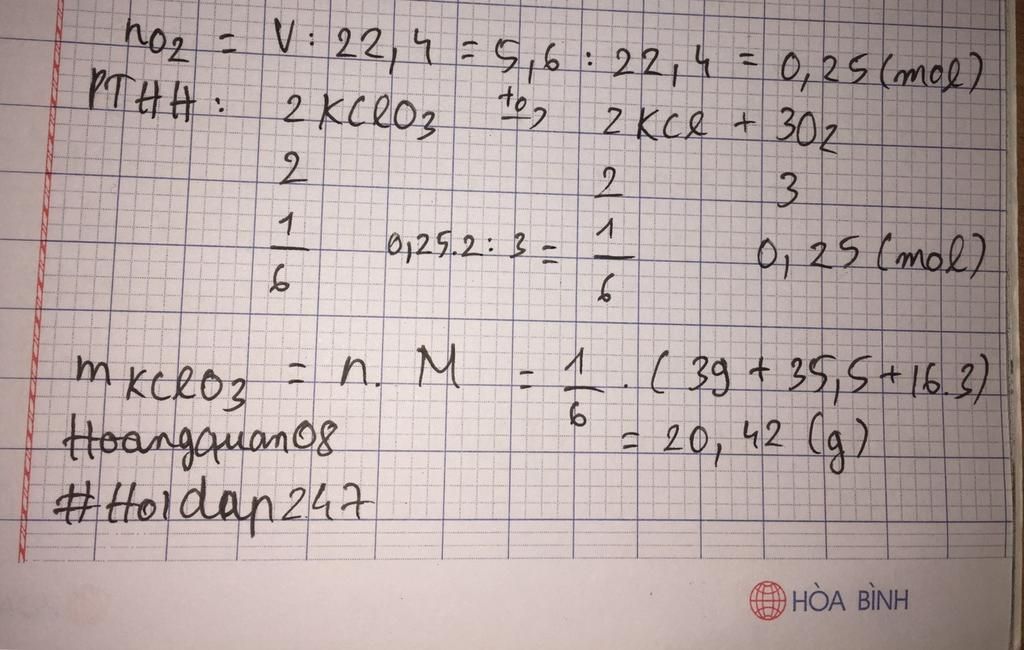 nO2 = V : 22,4 = 5,6 : 22,4 = 0,25 (mol)
PTHH : 2KClO3 t° → 2KCl + 3O2
2 2 3
1/6 0,25.2 : 3 = 1/6 0,25 (mol)
mKClO3 = n. M = 1/6 . (39 + 35,5 + 16.3)
Hoangquan08 = 20,42 (g)
#Hoidap247
HÒA BÌNH